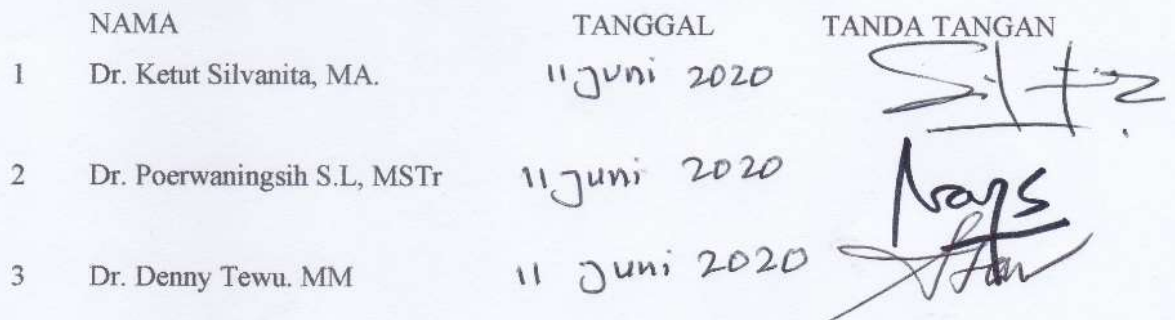 NAMA TANGGAL TANDA TANGAN
1 Dr. Ketut Silvanita, MA. 11 Juni 2020
2 Dr. Poerwaningsih S.L, MSTr 11 Juni 2020
3 Dr. Denny Tewu. MM 11 Juni 2020